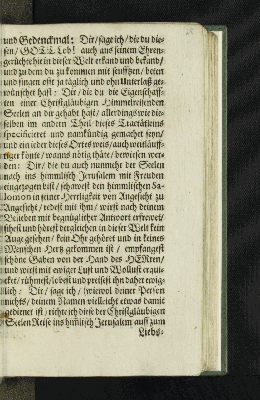 und Gedenckmal: Dir/ sage ich/ die du die-
sen/ GOTT Lob! auch aus seinem Ehren-
gerüchte hie in dieser Welt erkand und bekand/
und zu dem du zu kommen mit seuffzen/ beten
und singen offt ja täglich und ohn Unterlaß ge-
wünschet hast: Dir/ die du die Eigenschaff-
ten einer Christgläubigen Himmelreisenden
Seelen an dir gehabt hast/ allerdings wie die-
selben im andern Theil dieses Tractätleins
specificieret und namkündig gemachet seyn/
und ein ieder dieses Ortes weis/ auch weitläuff-
tiger könte/ wanns nötig thäte/ bewiesen wer-
den: Dir/ die du auch nunmehr der Seelen
nach ins himmlisch Jerusalem mit Freuden
eingezogen bist/ schawest den himmlischen Sa-
lomon in seiner Herrligkeit von Angesicht zu
Angesicht/ redest mit ihm/ wirst nach deinem
Belieben mit begnüglicher Antwort erfrewet/
sihest und hörest dergleichen in dieser Welt kein
Auge gesehen/ kein Ohr gehöret und in keines
Menschen Hertz gekommen ist/ empfangest
schöne Gaben von der Hand des HERRen/
und wirst mit ewiger Lust und Wollust erqui-
cket/ rühmest/ lobest und preisest ihn daher ewig-
lich: Dir/ sage ich/ (wiewol deiner Person
nichts/ deinem Namen vielleicht etwas damit
gedienet ist) richte ich diese der Christgläubigen
Seelen Reise ins himlisch Jerusalem auff zum
Liebs-